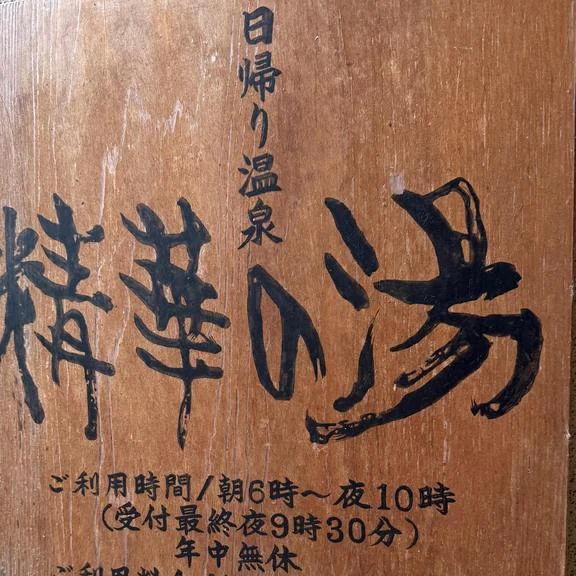 日帰り温泉
精華の湯
ご利用時間/朝6時～夜10時
(受付最終夜9時30分)
年中無休